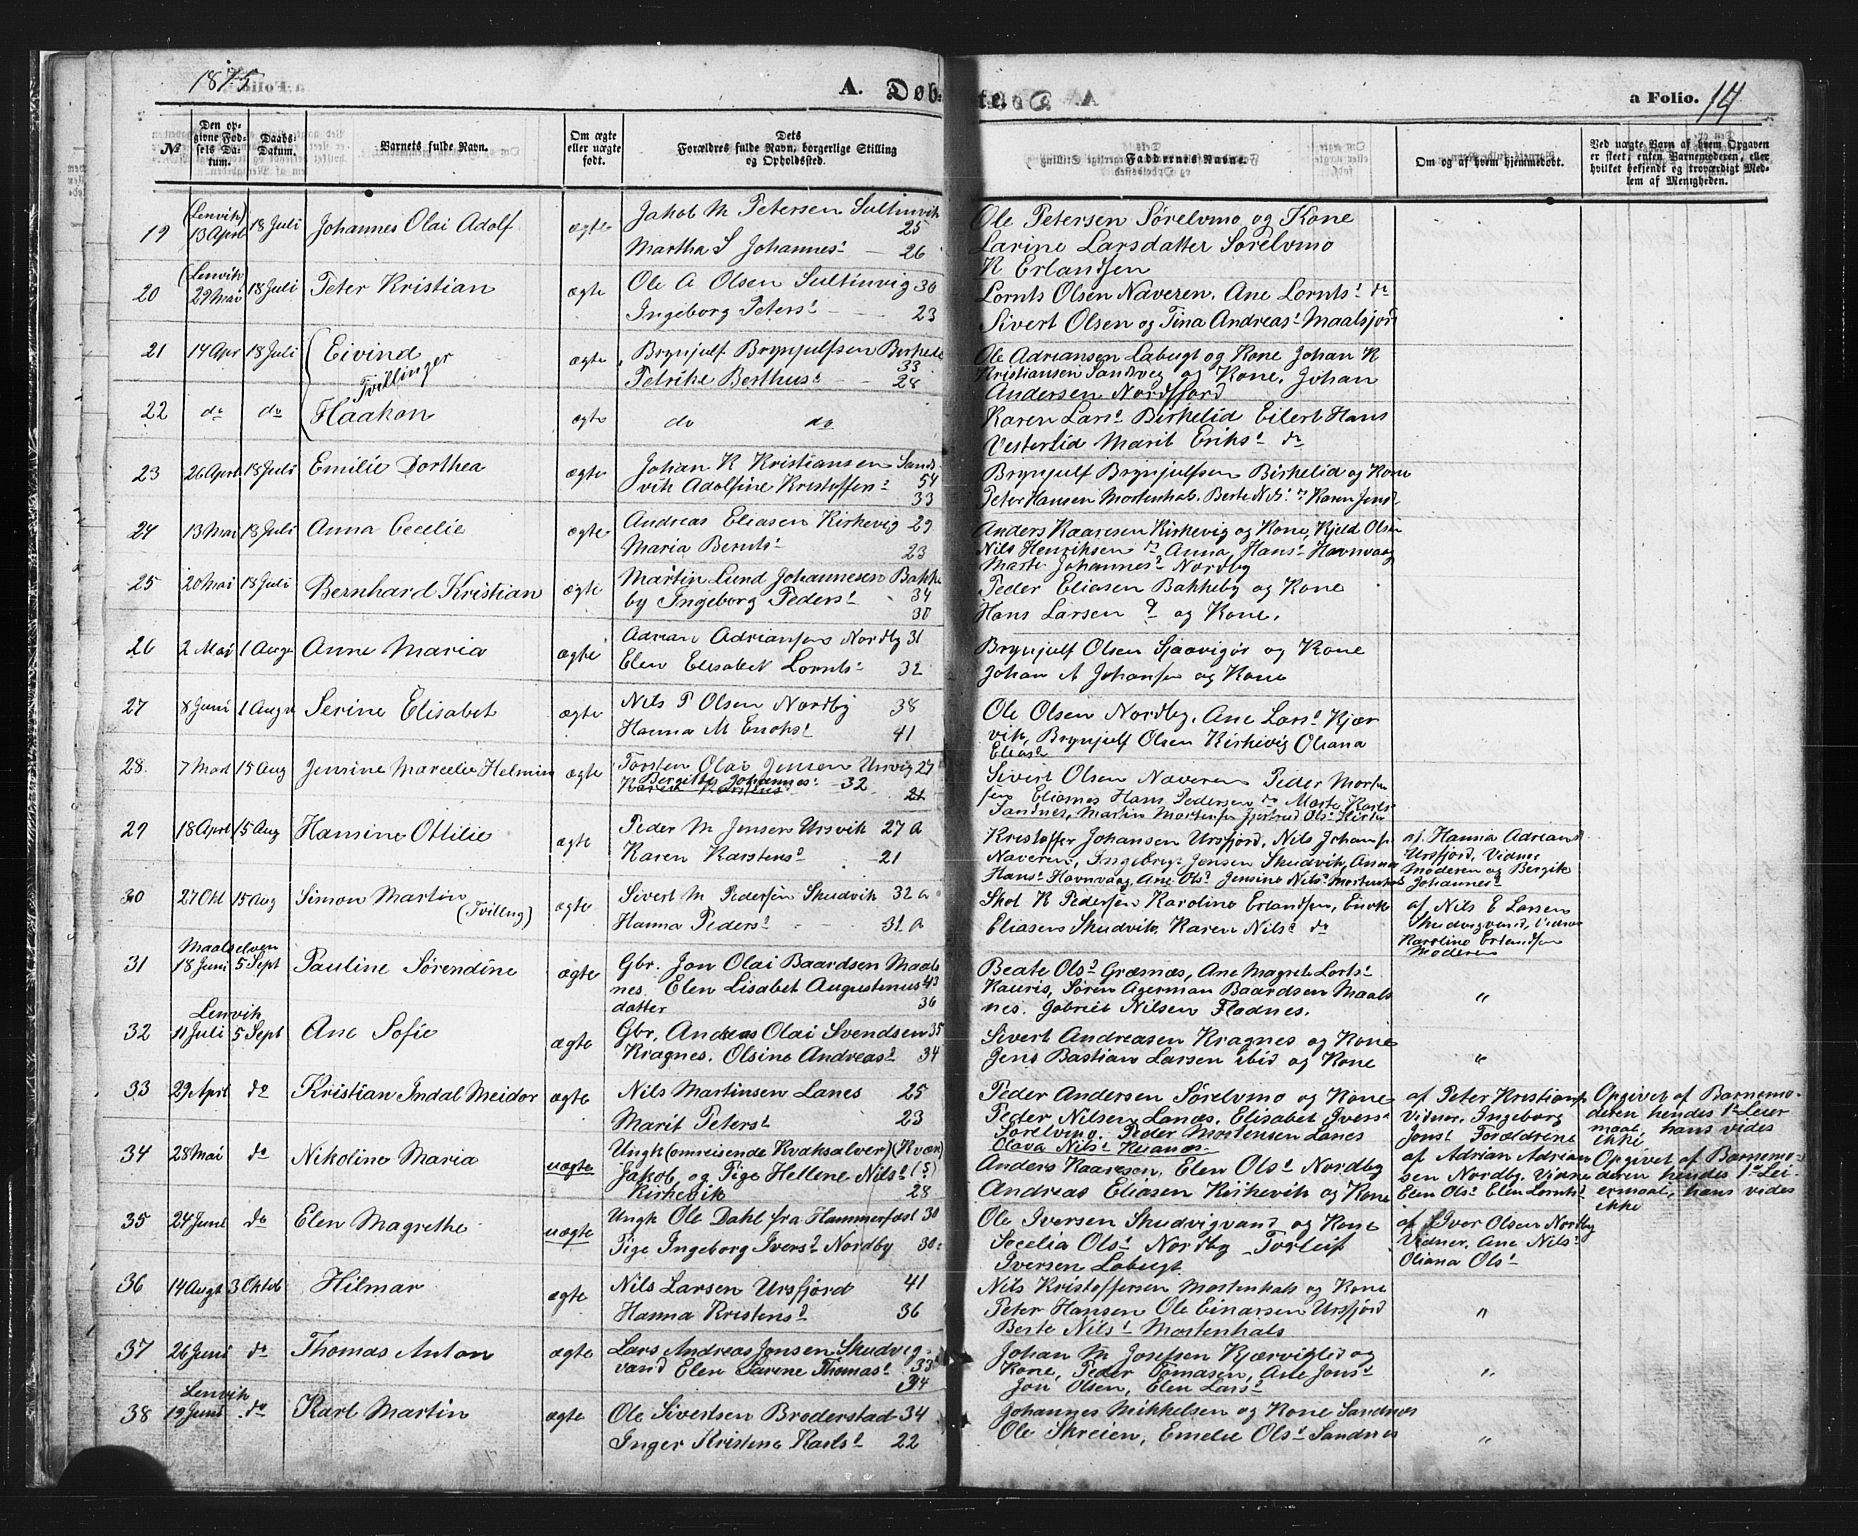 1875
A. Døbte.
a Folio. 14
№
Den opgivne Fødsels Datum.
Daabs Datum.
Barnets fulde Navn.
Om ægte eller uægte født.
Dets Forældres fulde Navn, borgerlige Stilling og Opholdssted.
Faddernes Navne.
Om og af hvem hjemmedøbt.
Ved uægte Barn af hvem Opgaven er skeet, enten Barnemoderen, eller hvilket bekjendt og troværdigt Medlem af Menigheden.
19 (Lenvik) 13 April 18 Juli Johannes Olai Adolf ægte Jakob M Petersen Sultinvik 25
Martha S Johannesd 26
Ole Petersen Sørelvmo og Kone
Larine Larsdatter Sørelvmo
K Erlandsen
20 (Lenvik) 29 Mai 18 Juli Peter Kristian ægte Ole A Olsen Sultinvig 30
Ingeborg Petersd 23
Lornts Olsen Naveren. Ane Lorntsd do
Sivert Olsen og Tina Andreasd Maalsjord
21 14 Apr 18 Juli Eivind ægte Brynjulf Brynjulfsen Birkeli 33
Tvillinger
Petrike Berthusd 28
Ole Adriansen Labugt og Kone Johan K
Kristiansen Sandveg og Kone. Johan
Andersen Nordfjord
22 do do Haakon ægte do do
Karen Larsd Birkelid Eilert Hans
Vesterlid Marit Eriksd do
23 26 April 18 Juli Emilie Dorthea ægte Johan K Kristiansen Sandvik 54
Adolfine Kristoffersd 33
Brynjulf Brynjulfsen Birkelid og Kone
Peter Hansen Mortenhals. Berte Nilsd Karen Jensd
24 13 Mai 18 Juli Anna Cecelie ægte Andreas Eliasen Kirkevig 29
Maria Berntsd 23
Anders Kaaresen Kirkevig og Kone, Kjeld Olsen
Nils Henriksen do Anna Hansd Havnvaag
Marte Johannesd Nordby
25 20 Mai 18 Juli Bernhard Kristian ægte Martin Lund Johannesen Bakkeby 34
Ingeborg Pedersd 30
Peder Eliasen Bakkeby og Kone
Hans Larsen do og Kone.
26 2 Mai 1 Augs Anne Maria ægte Adrian Adriansen Nordby 31
Elen Elisabet Lorntsd 32
Brynjulf Olsen Sjaavigør og Kone
Johan A Johansen og Kone
27 8 Juni 1 Augs Serine Elisabet ægte Nils P Olsen Nordby 38
Hanna M Enoksd 41
Ole Olsen Nordby. Ane Larsd Kjær
vik, Brynjulf Olsen Kirkevig Oliana
Eliasd
28 7 Mai 15 Aug Jensine Marcelie Helmine ægte Torsten Olai Jensen Ursvig 27
Bergitte Johannesd 32
Sivert Olsen Naveren Peder Morten
sen Eliasnes Hans Pedersen do Marte Karlsd
Sandnes, Martin Mortensen Gjertrud Olsd
29 18 April 15 Aug Hansine Ottilie ægte Peder M Jensen Ursvik 27 a
Karen Karstensd 21
Kristoffer Johansen Ursfjord, Nils Johansen
Naveren, Ingebrigt Jensen Skudvik, Anna
Hansd Havnvaag, Ane Olsd Jensine Nilsd Mortenhals
af Hanna Adriansd
Ursfjord, Vidner
Moderen og Bergite
Johannesd
30 27 Okt 15 Aug Simon Martin (Tvilling) ægte Sivert M Pedersen Skudvik 32 a
Hanna Pedersd 31 a
Skot K Pedersen Karoline Erlandsen, Enok
Eliasen Skudvik, Karen Nilsd do
af Nils E Larsen
Skudvigvand, Vidner
Karoline Erlandsen
Moderen
31 Maalselven 18 Juni 5 Sept Pauline Sørendine ægte Gbr. Jon Olai Baardsen Maals
nes. Elen Lisabet Augustinus 43
datter 36
Beate Olsd Græsnæs, Ane Magrete Lortsd
Kauris, Søren Agerman Baardsen Maals
nes. Gabriel Nilsen Flodnes.
"
32 Lenvik 11 Juli 5 Sept Ane Sofie ægte Gbr. Andreas Olai Svendsen 35
Kragnes. Olsine Andreasd 34
Sivert Andreasen Kragnes og Kone
Jens Bastian Larsen ibid og Kone
"
33 29 April do Kristian Indal Meidor ægte Nils Martinsen Lanes 25
Marit Petersd 23
Peder Andersen Sørelvmo og Kone
Peder Nilsen Lanæs. Elisabet Iversd
Sørelvmo. Peder Mortensen Lanes
Olava Nilsd
af Peter Kristians
Vidner. Ingeborg
Jonsd Forældrene
Opgivet af Barnemo-
deren hendes 1ste Leier
maal, hans vides
ikke
34 28 Mai do Nikoline Maria uægte Ungk (omreisende Kvaksalver) (Kvæn)
Jakob og Pige Hellene Nilsd (5)
Kirkevik 28
Anders Kaaresen, Elen Olsd Nordby
Andreas Eliasen Kirkevik og Kone
af Adrian Adrian
sen Nordby. Vidner
Elen Olsd Elen Lorntsd
Opgivet af Barnemo-
deren hendes 1ste Lei
ermaal, hans vides
ikke
35 24 Juni do Elen Magrethe uægte Ungk Ole Dahl fra Hammerfest 30
Pige Ingeborg Iversd Nordby 30
Ole Iversen Skudvigvand og Kone
Secelia Olsd Nordby Torleif
Iversen Labugt
af Iver Olsen Nordby
Vidner. Ane Nilsd
Oliana Olsd
36 14 Augt 3 Oktob Hilmar ægte Nils Larsen Ursfjord 41
Hanna Kristensd 36
Nils Kristoffersen Mortenhals og Kone
Peter Hansen Ole Einarsen Ursfjord
Berte Nilsd Mortenhals
"
37 26 Juni do Thomas Anton ægte Lars Andreas Jonsen Skudvig-
vand Elen Sarene Thomasd 33
34
Johan M Josefsen Kjærviglid og
Kone, Peder Tomasen, Ane Jonsd
Jon Olsen, Elen Larsd
"
38 Lenvik 19 Juni do Karl Martin ægte Ole Sivertsen Broderstad 34
Inger Kristene Karlsd 22
Johannes Mikkelsen og Kone Sandnes
Ole Skreien, Emelie Olsd Sandnes
"